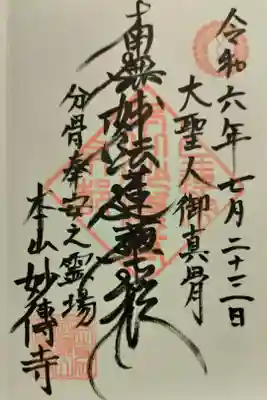 令和六年七月二十二日
大聖人御真骨
南無妙法蓮華経
分骨奉安之霊場
本山妙傳寺